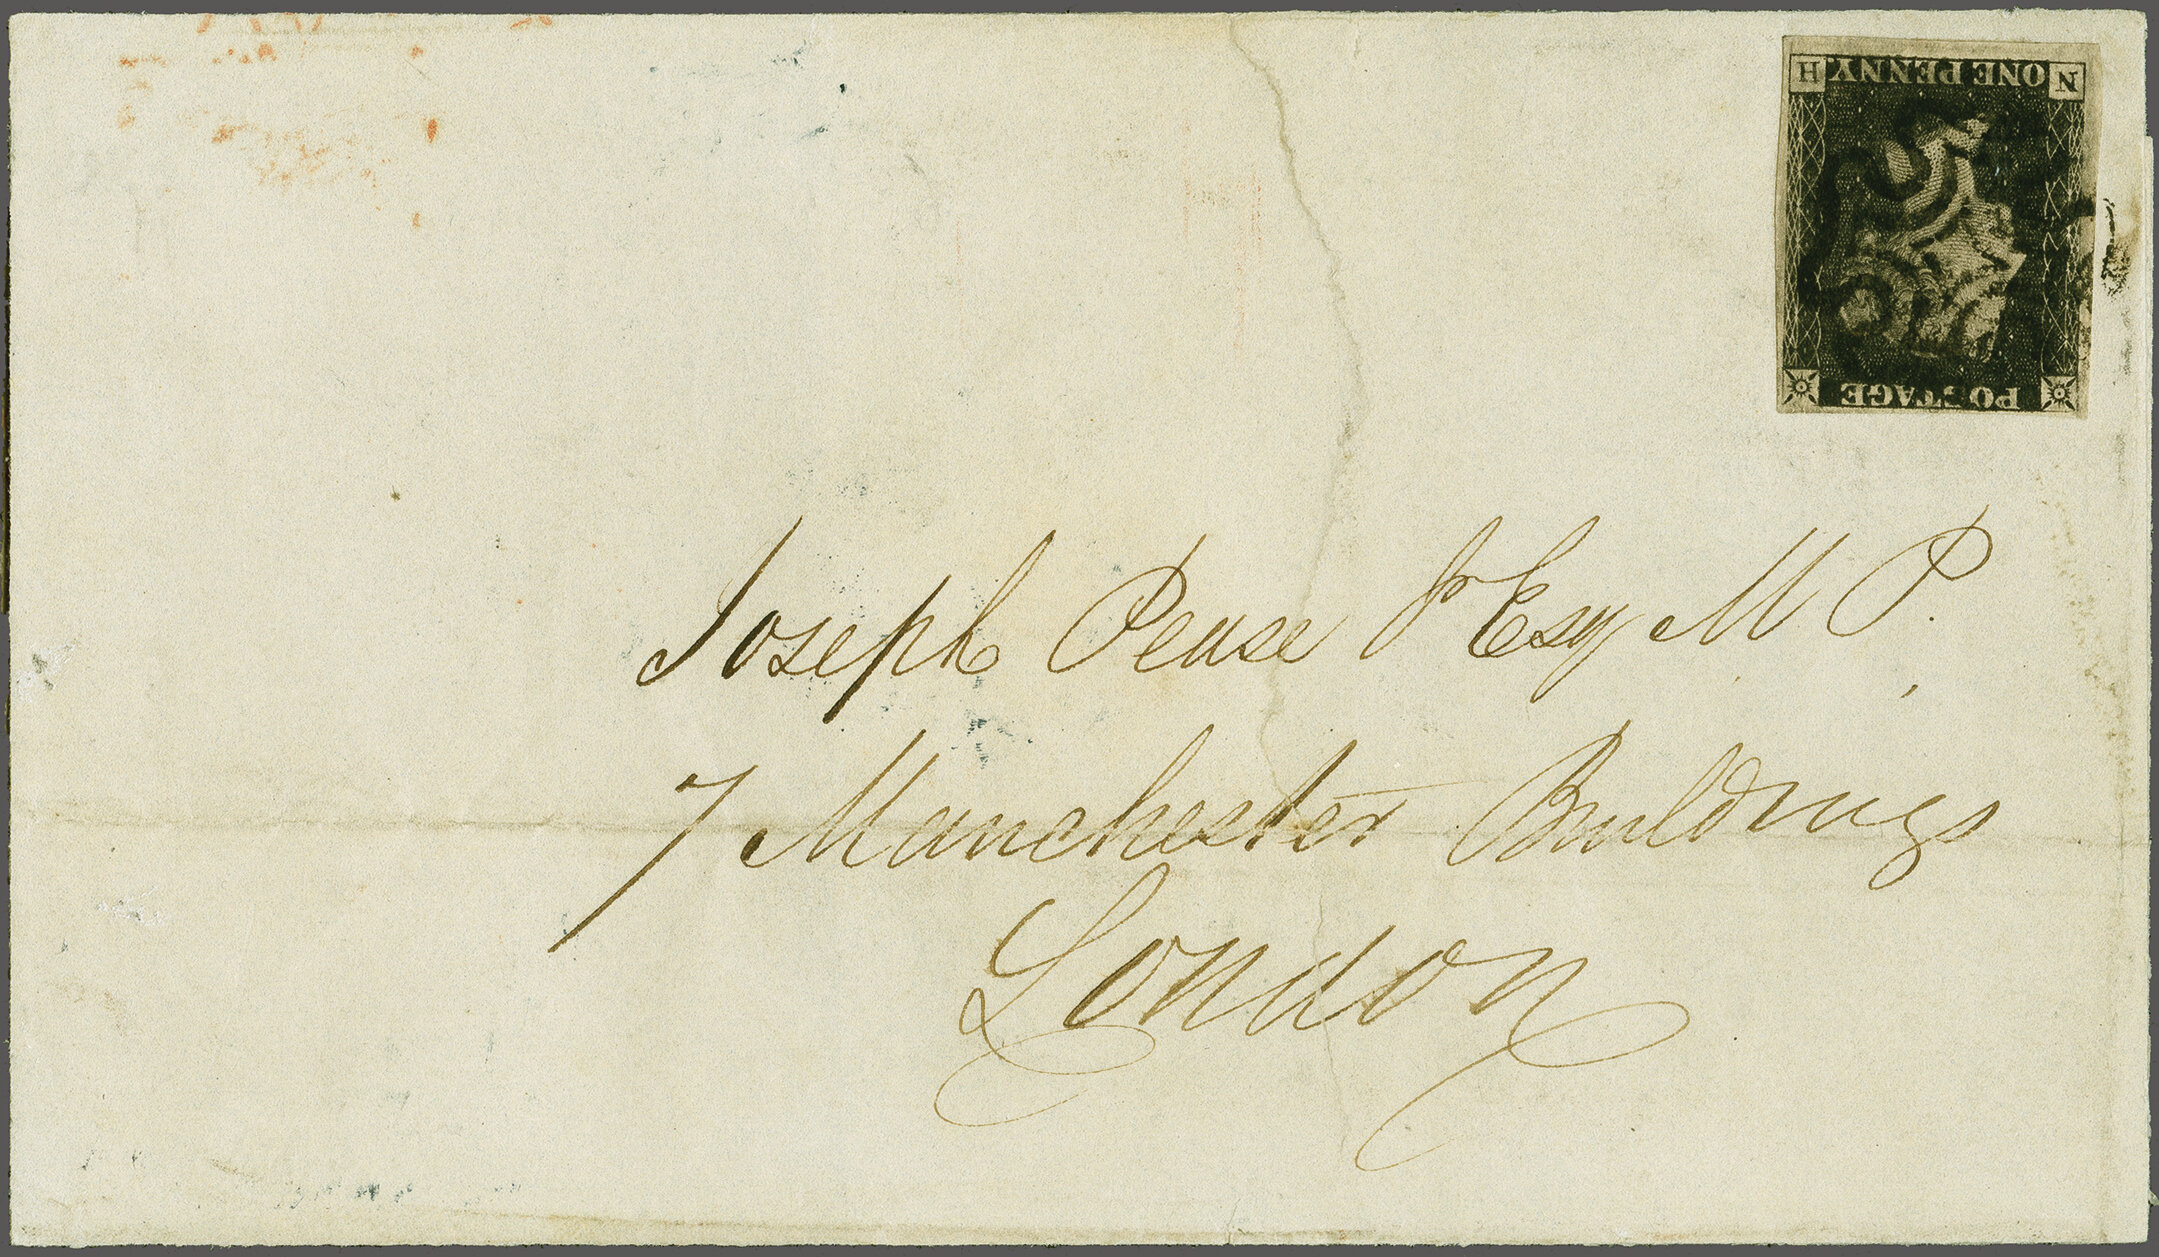 POSTAGE
N H
ONE PENNY.
Joseph Pease Jr Esq M P.
7 Manchester Buildings
London